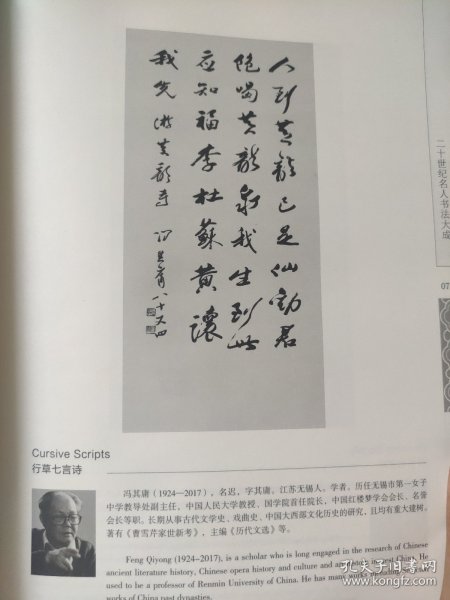 人到黄龙已是仙劝君
饱喝黄龙泉我生到此
应知福李杜苏黄让
我先游黄龙寺 冯其庸八十又四
二十世纪名人书法大成
07
Cursive Scripts
行草七言诗
冯其庸（1924—2017），名迟，字其庸。江苏无锡人。学者。历任无锡市第一女子
中学教导处副主任，中国人民大学教授、国学院首任院长，中国红楼梦学会会长、名誉
会长等职。长期从事古代文学史、戏曲史、中国大西部文化历史的研究，且均有重大建树。
著有《曹雪芹家世新考》，主编《历代文选》等。
Feng Qiyong (1924-2017), is a scholar who is long engaged in the research of Chinese
ancient literature history, Chinese opera history and culture and art history in China. He
used to be a professor of Renmin University of China. He has many works
works of China past dynasties.
孔夫子旧书网